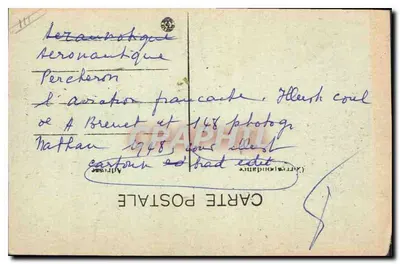 Aeronautique
Aeronautique
Percheron
l'aviation francaise. Illust coul
de A Brenet et 148 photogr
Nathan 1948, couv illust
cartonn ed trad edit
Correspondance
Adresse
CARTE POSTALE